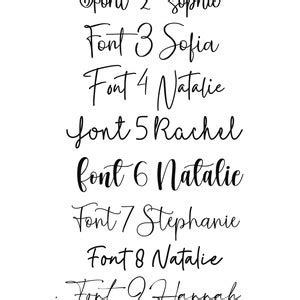 font 2 Sophie
Font 3 Sofia
Font 4 Natalie
font 5 Rachel
font 6 Natalie
Font 7 Stephanie
Font 8 Natalie
Font 9 Hannah